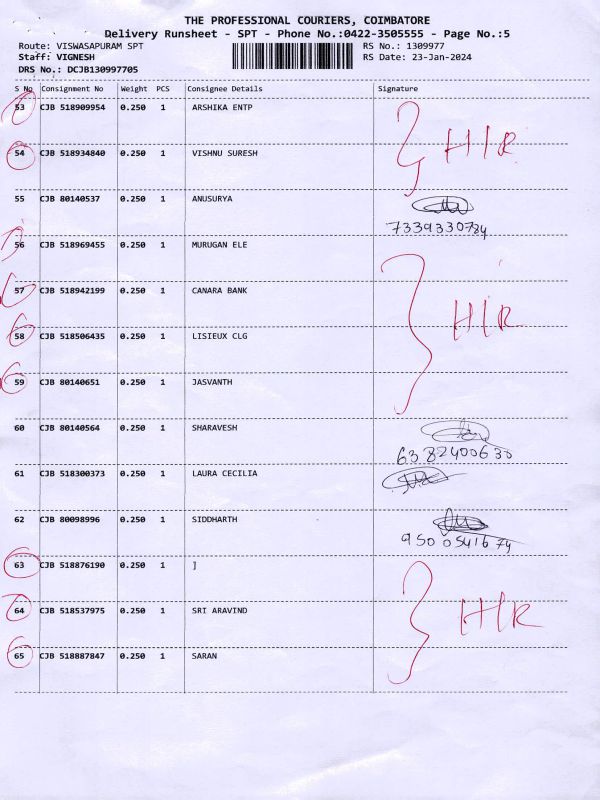 THE PROFESSIONAL COURIERS, COIMBATORE
Delivery Runsheet - SPT - Phone No.:0422-3505555 - Page No.:5
Route: VISWASAPURAM SPT RS No.: 1309977
Staff: VIGNESH RS Date: 23-Jan-2024
DRS No.: DCJB130997705
S No Consignment No Weight PCS Consignee Details Signature
53 CJB 518909954 0.250 1 ARSHIKA ENTP
H/R
54 CJB 518934840 0.250 1 VISHNU SURESH
55 CJB 80140537 0.250 1 ANUSURYA
7339330784
56 CJB 518969455 0.250 1 MURUGAN ELE
57 CJB 518942199 0.250 1 CANARA BANK
H/R
58 CJB 518506435 0.250 1 LISIEUX CLG
59 CJB 80140651 0.250 1 JASVANTH
60 CJB 80140564 0.250 1 SHARAVESH
6382400630
61 CJB 518300373 0.250 1 LAURA CECILIA
62 CJB 80098996 0.250 1 SIDDHARTH
9500541674
63 CJB 518876190 0.250 1 ]
64 CJB 518537975 0.250 1 SRI ARAVIND
H/R
65 CJB 518887847 0.250 1 SARAN